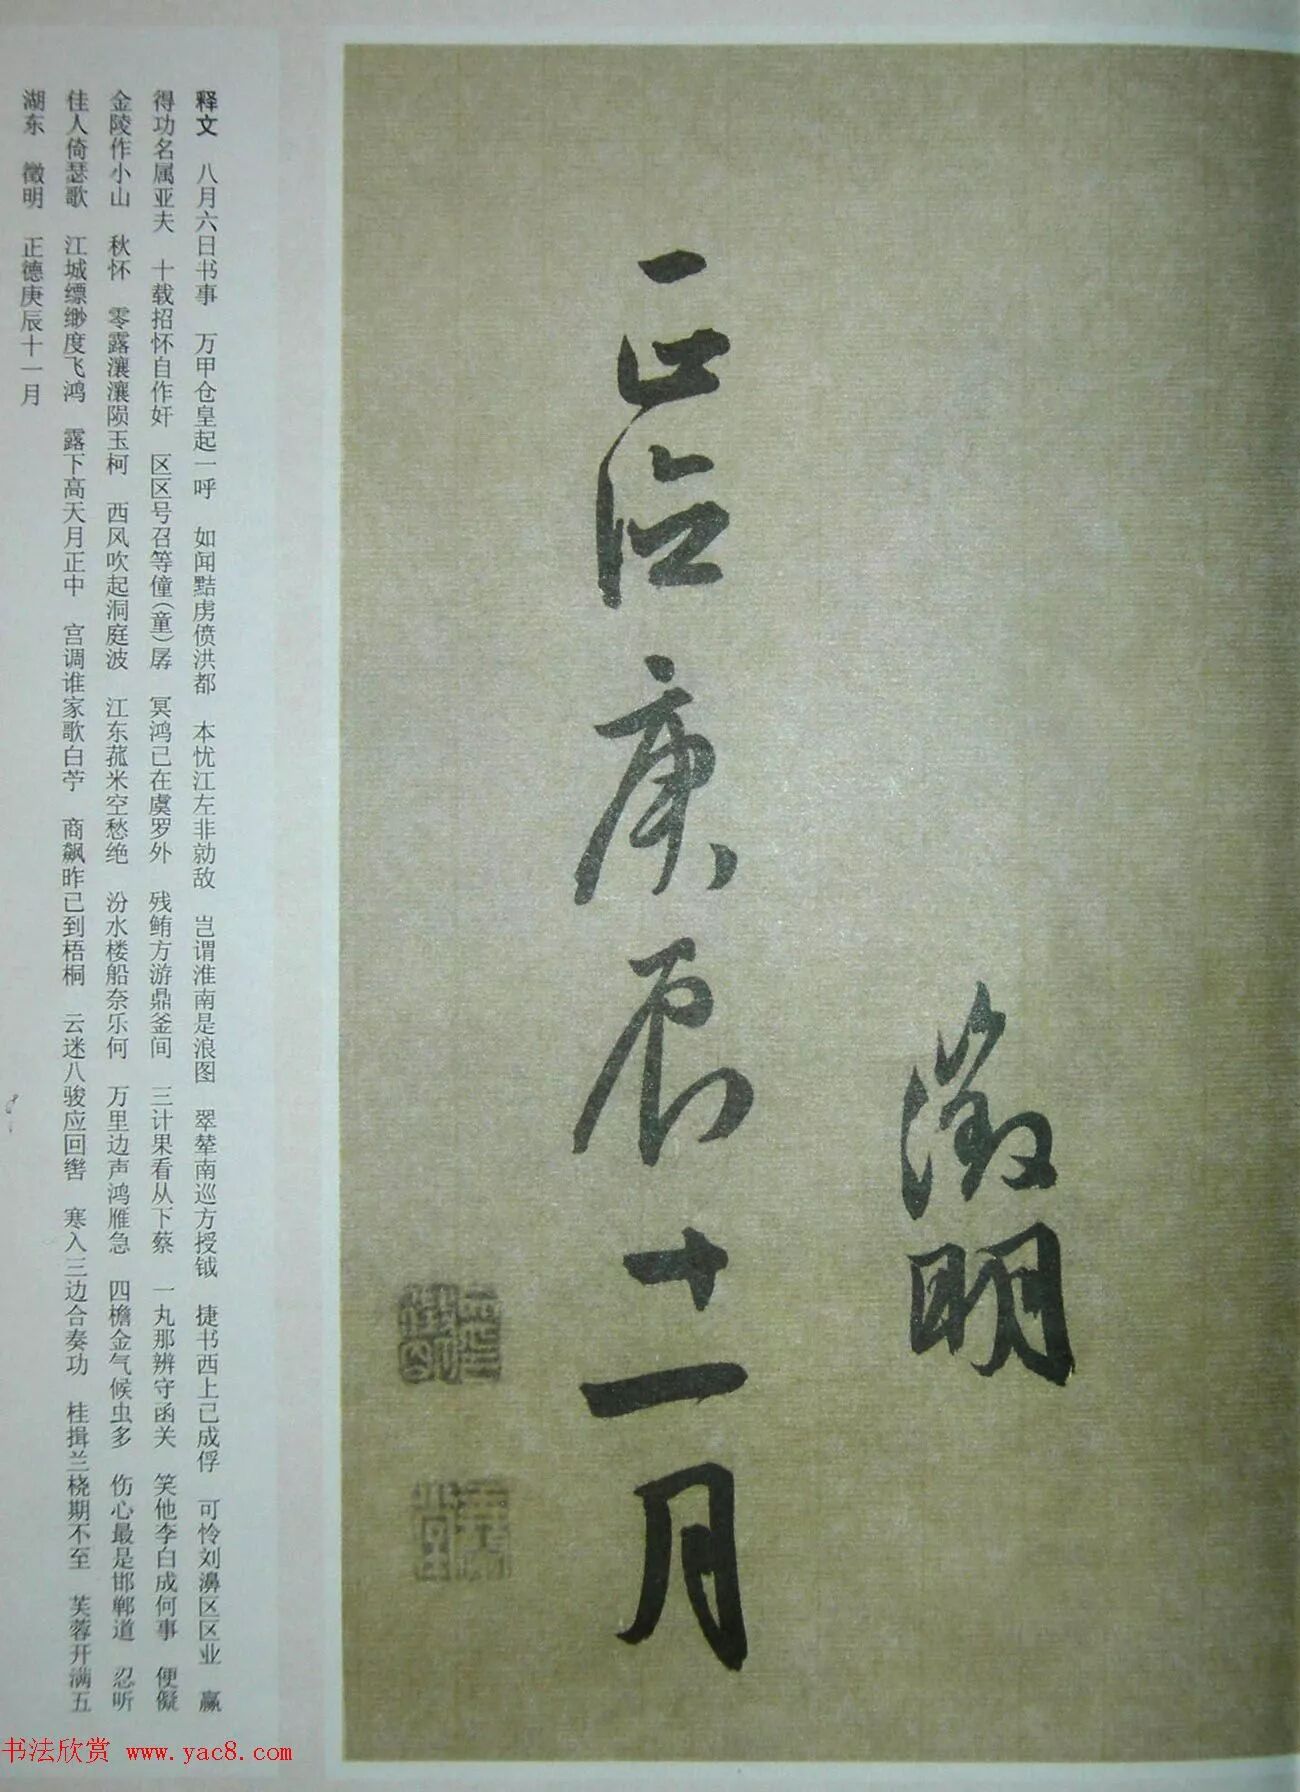 徵明
正德庚辰十一月
释文 八月六日书事 万甲仓皇起一呼 如闻黠虏偾洪都 本忧江左非勍敌 岂谓淮南是浪图 翠辇南巡方授钺 捷书西上已成俘 可怜刘濞区区业 赢
得功名属亚夫 十载招怀自作奸 区区号召等僮(童)孱 冥鸿已在虞罗外 残鲔方游鼎釜间 三计果看从下蔡 一丸那辨守函关 笑他李白成何事 便儗
金陵作小山 秋怀 零露瀼瀼陨玉柯 西风吹起洞庭波 江东菰米空愁绝 汾水楼船奈乐何 万里边声鸿雁急 四檐金气候虫多 伤心最是邯郸道 忍听
佳人倚瑟歌 江城缥缈度飞鸿 露下高天月正中 宫调谁家歌白苧 商飙昨已到梧桐 云迷八骏应回辔 寒入三边合奏功 桂揖兰桡期不至 芙蓉开满五
湖东 徵明 正德庚辰十一月
书法欣赏 www.yac8.com